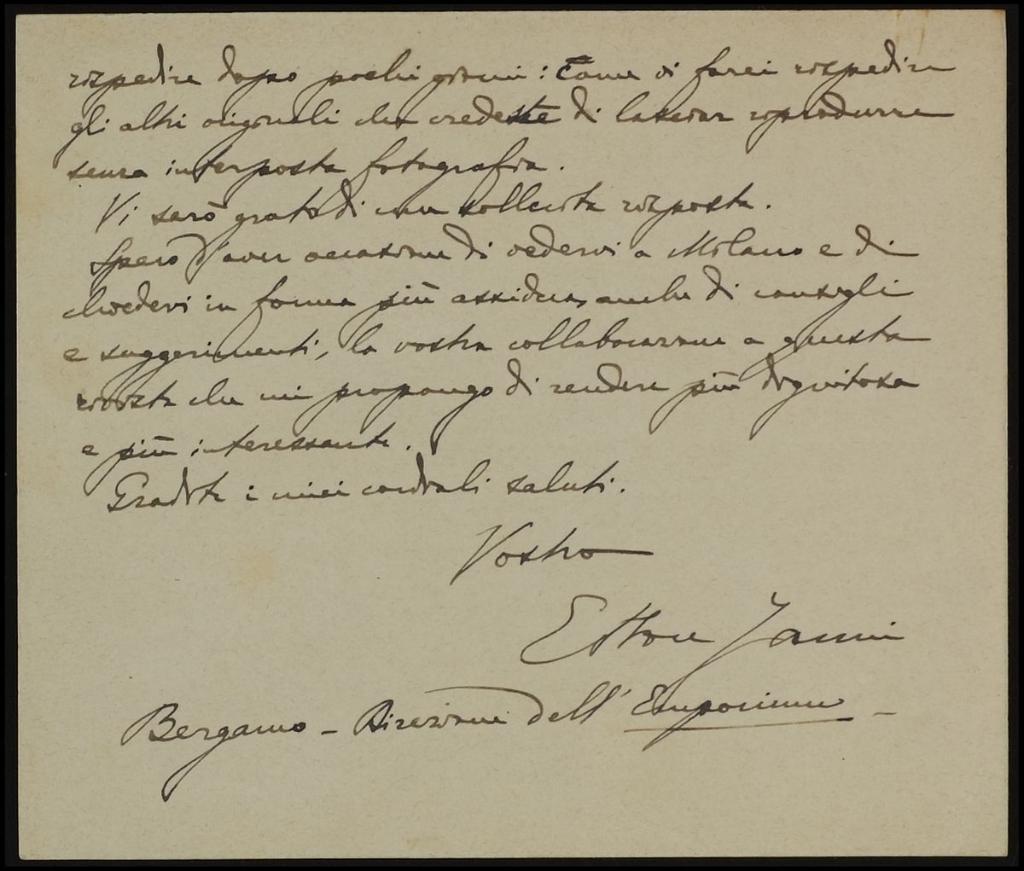 rispedire dopo pochi giorni: Come vi farei rispedire
gli altri originali che credeste di lasciar riprodurre
senza interposta fotografia.
Vi sarò grato di una sollecita risposta.
Spero d'aver occasione di vedervi a Milano e di
chiedervi in forma più assidua, anche di consigli
e suggerimenti, la vostra collaborazione a questa
rivista che mi propongo di rendere più dignitosa
e più interessante.
Gradite i miei cordiali saluti.
Vostro
Ettore Janni
Bergamo - Direzione dell'Emporium -